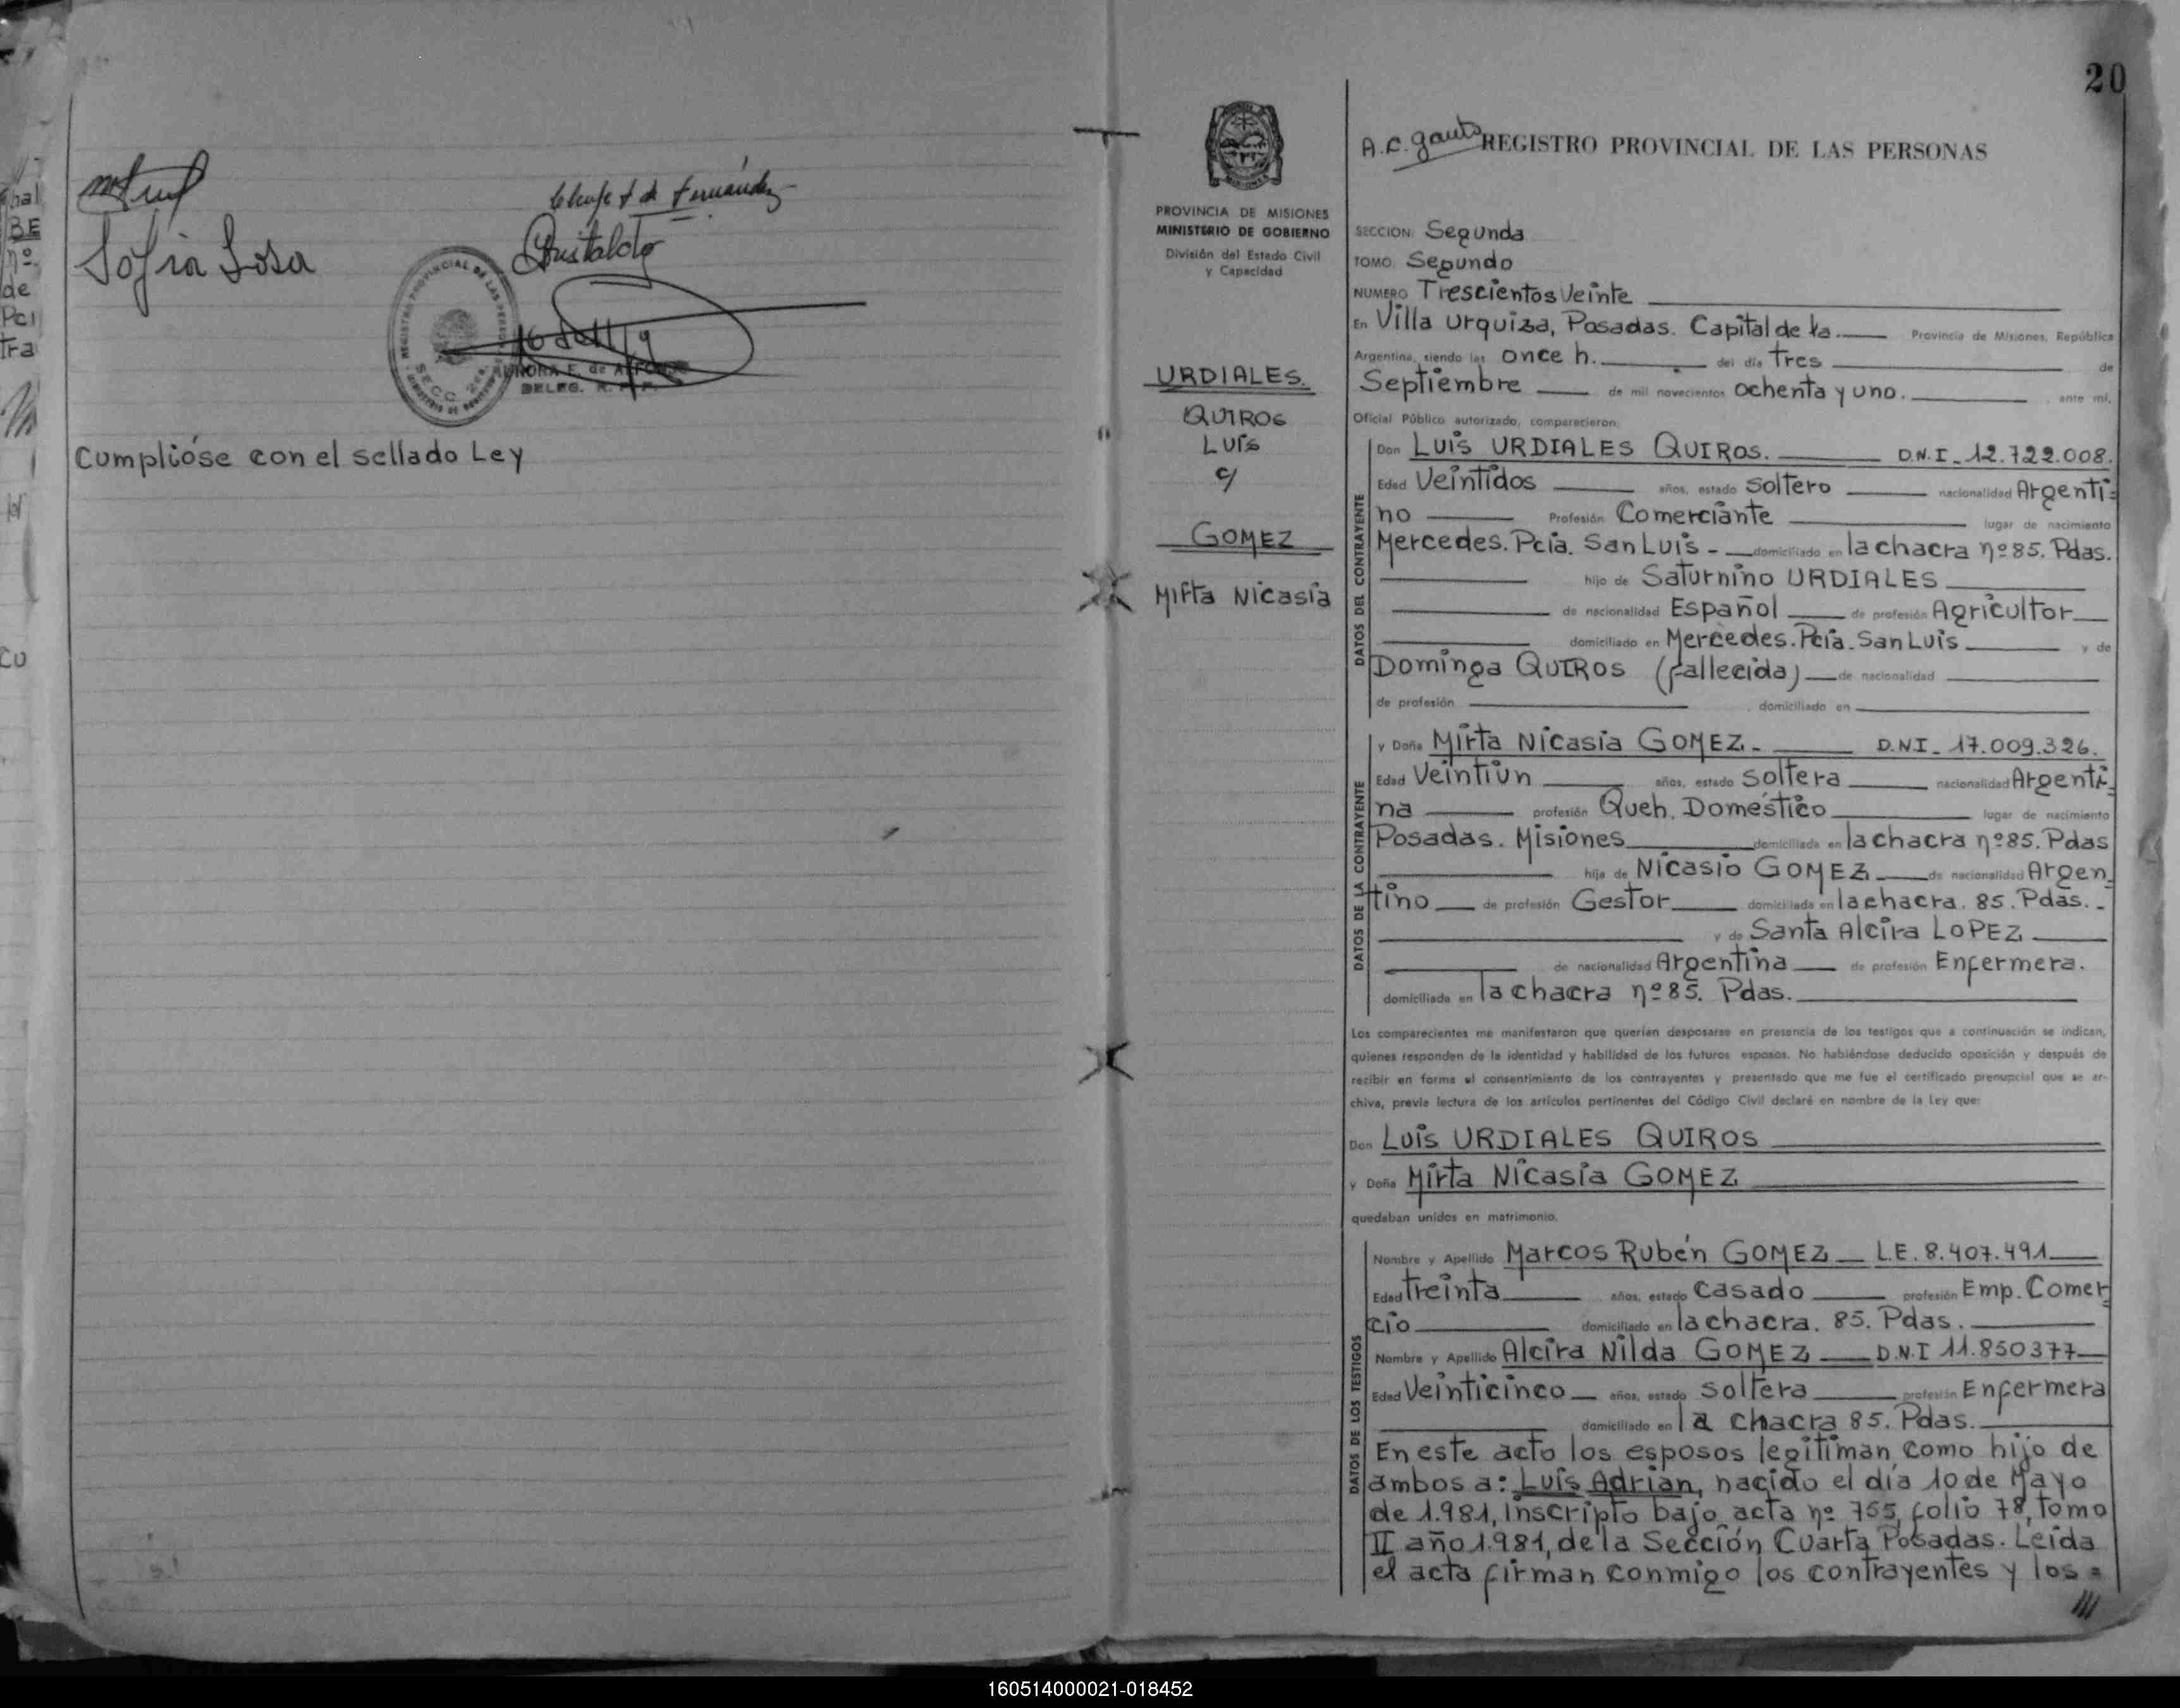 Sofia Sosa
de Fernández
REGISTRO PROVINCIAL DE LAS PERSONAS
SECC. 2da.
AURORA E. de
DELEG. R. P. P.
Cumplióse con el sellado Ley
20
PROVINCIA DE MISIONES
MINISTERIO DE GOBIERNO
División del Estado Civil
y Capacidad
URDIALES.
QUIROS
Luis
c/
GOMEZ
Mirta Nicasia
A.C. Gauto
REGISTRO PROVINCIAL DE LAS PERSONAS
SECCION: Segunda
TOMO: Segundo
NUMERO Trescientos Veinte
En Villa Urquiza, Posadas. Capital de la. Provincia de Misiones, República
Argentina, siendo las once h. del día tres de
Septiembre de mil novecientos ochenta y uno. ante mí,
Oficial Público autorizado, comparecieron:
DATOS DEL CONTRAYENTE
Don Luis URDIALES QUIROS. D.N.I. 12.722.008.
Edad Veintidos años, estado soltero nacionalidad Argenti=
no Profesión Comerciante lugar de nacimiento
Mercedes. Pcia. San Luis - domiciliado en la chacra nº 85. Pdas.
hijo de Saturnino URDIALES
de nacionalidad Español de profesión Agricultor
domiciliado en Mercedes. Pcia. San Luis y de
Dominga QUIROS (fallecida) de nacionalidad
de profesión domiciliado en
DATOS DE LA CONTRAYENTE
y Doña Mirta Nicasia GOMEZ. D.N.I. 17.009.326.
Edad Veintiún años, estado soltera nacionalidad Argenti=
na profesión Queh. Doméstico lugar de nacimiento
Posadas. Misiones domiciliada en la chacra nº 85. Pdas
hija de Nicasio GOMEZ de nacionalidad Argen=
tino de profesión Gestor domiciliado en la chacra. 85. Pdas. -
y de Santa Alcira LOPEZ
de nacionalidad Argentina de profesión Enfermera.
domiciliada en la chacra nº 85. Pdas.
Los comparecientes me manifestaron que querían desposarse en presencia de los testigos que a continuación se indican,
quienes responden de la identidad y habilidad de los futuros esposos. No habiéndose deducido oposición y después de
recibir en forma el consentimiento de los contrayentes y presentado que me fue el certificado prenupcial que se ar-
chiva, previa lectura de los artículos pertinentes del Código Civil declaré en nombre de la Ley que:
Don Luis URDIALES QUIROS
y Doña Mirta Nicasia GOMEZ
quedaban unidos en matrimonio.
DATOS DE LOS TESTIGOS
Nombre y Apellido Marcos Rubén GOMEZ L.E. 8.407.491
Edad treinta años, estado casado profesión Emp. Comer=
cio domiciliado en la chacra. 85. Pdas.
Nombre y Apellido Alcira Nilda GOMEZ D.N.I 11.850377
Edad Veinticinco años, estado soltera profesión Enfermera
domiciliado en la chacra 85. Pdas.
En este acto los esposos legitiman, como hijo de
ambos a: Luis Adrian, nacido el día 10 de Mayo
de 1.981, inscripto bajo acta nº 755, folio 78, tomo
II año 1.981, de la Sección Cuarta Posadas. Leída
el acta firman conmigo los contrayentes y los =
///
160514000021-018452